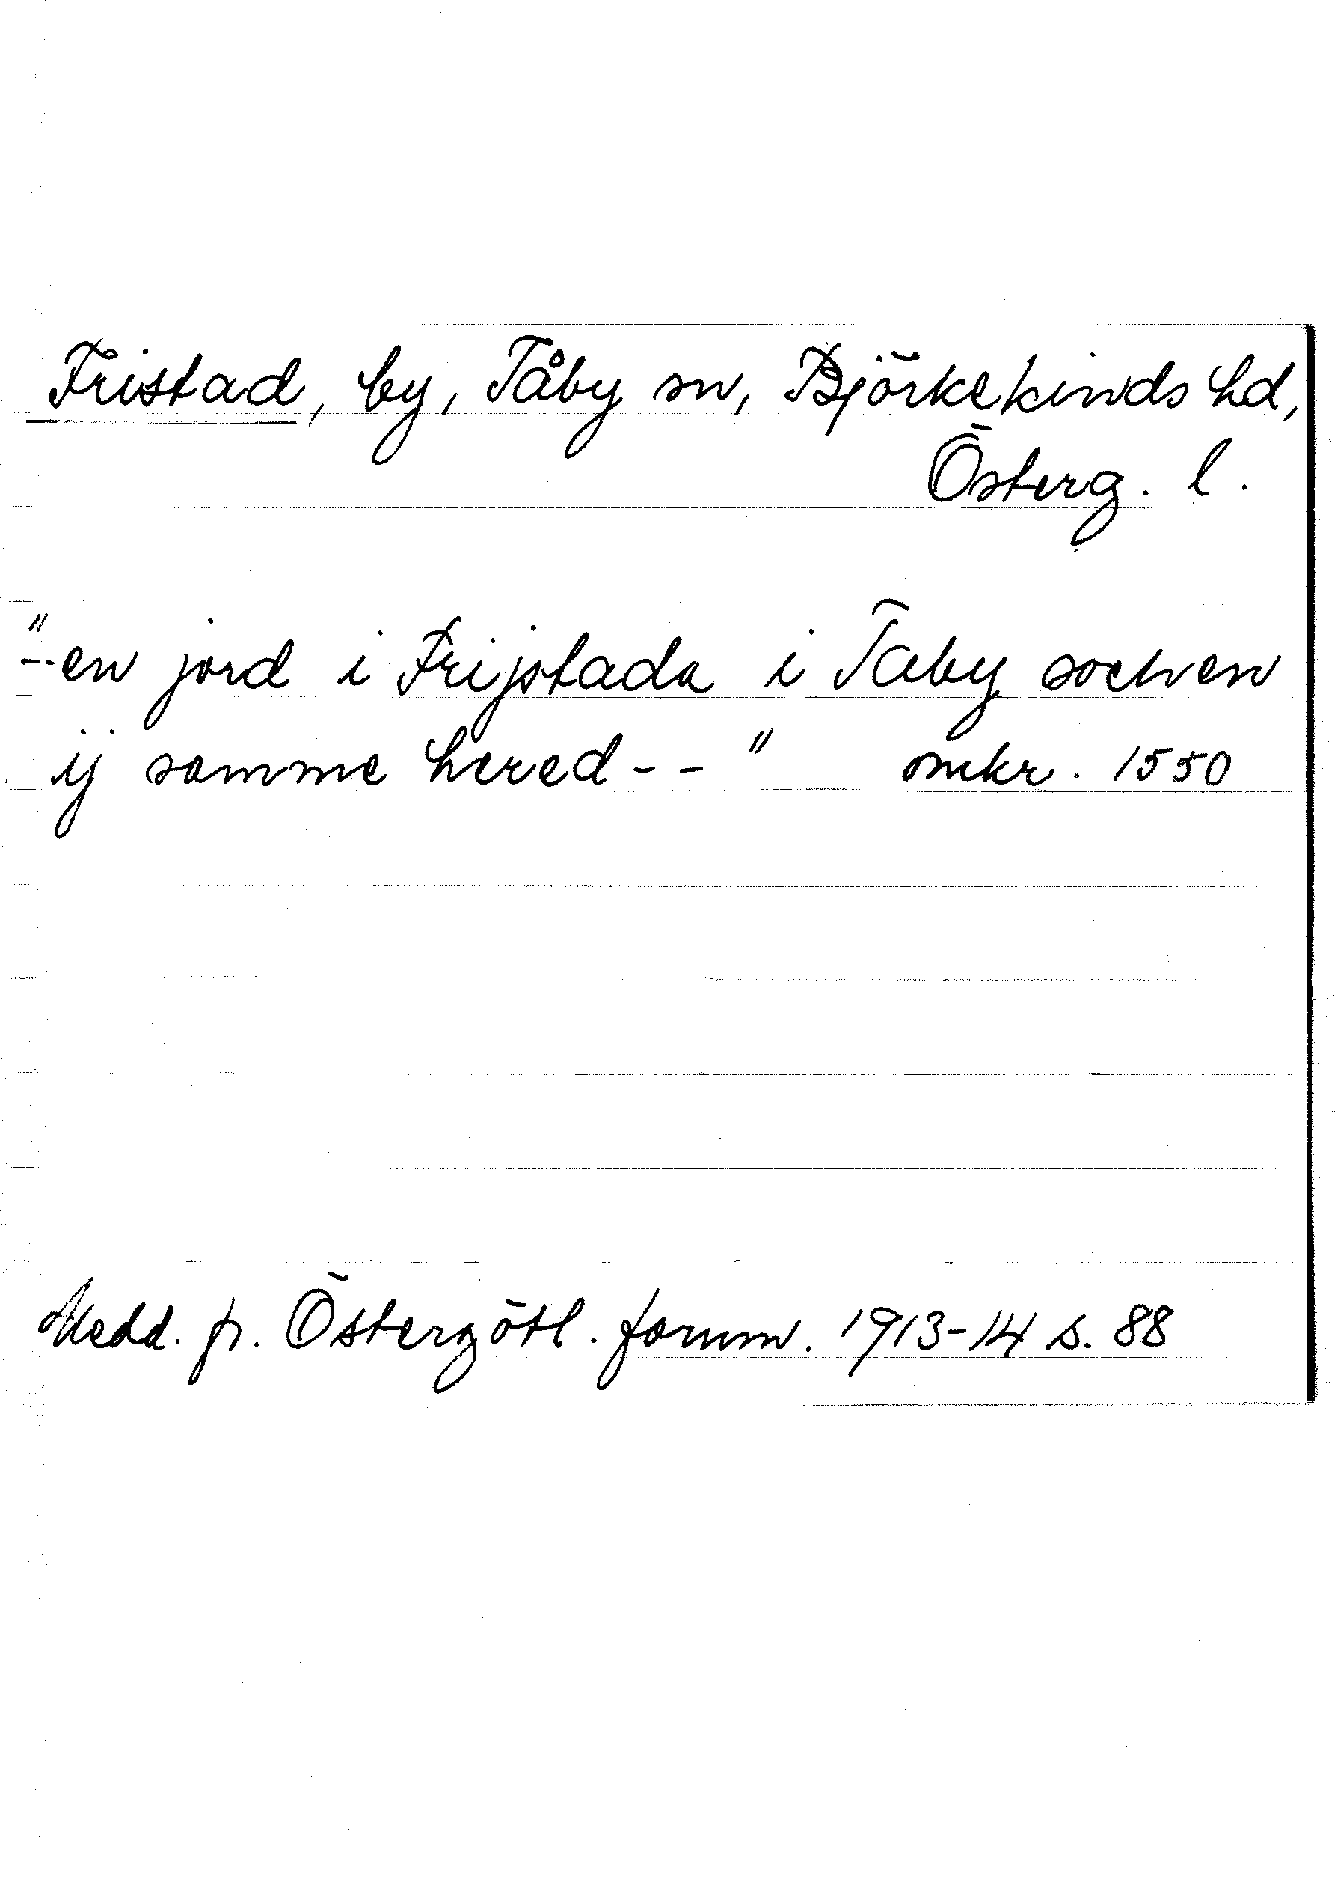 Fristad, by, Tåby sn, Björkekinds hd,
Österg. l.
"--en jord i Frijstada i Taby sochen
ij samme hered--" omkr. 1550
Medd. fr. Östergötl. fornm. 1913-14 s. 88